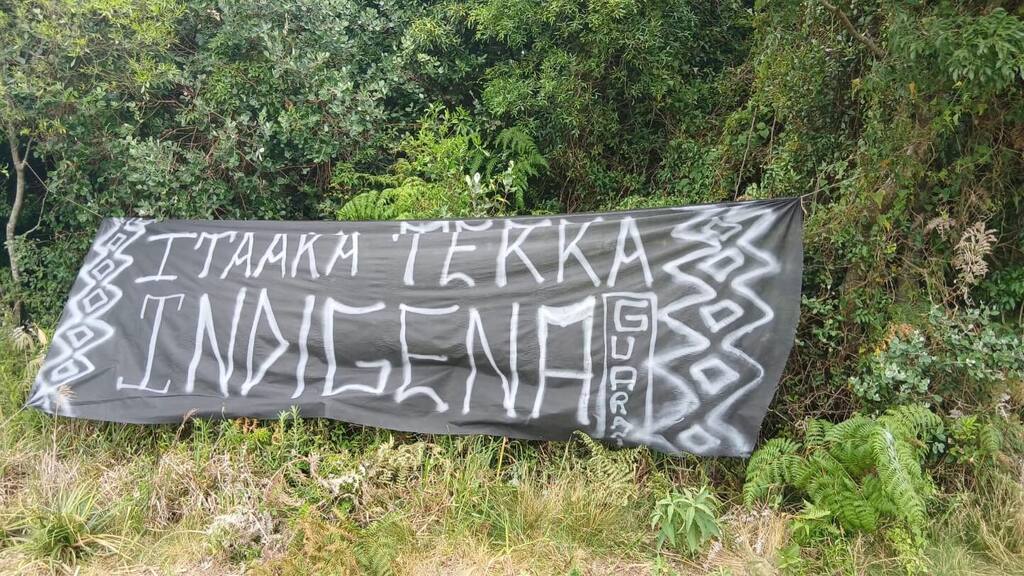 ITAAKA TEKKA
INDIGENA
GUARA